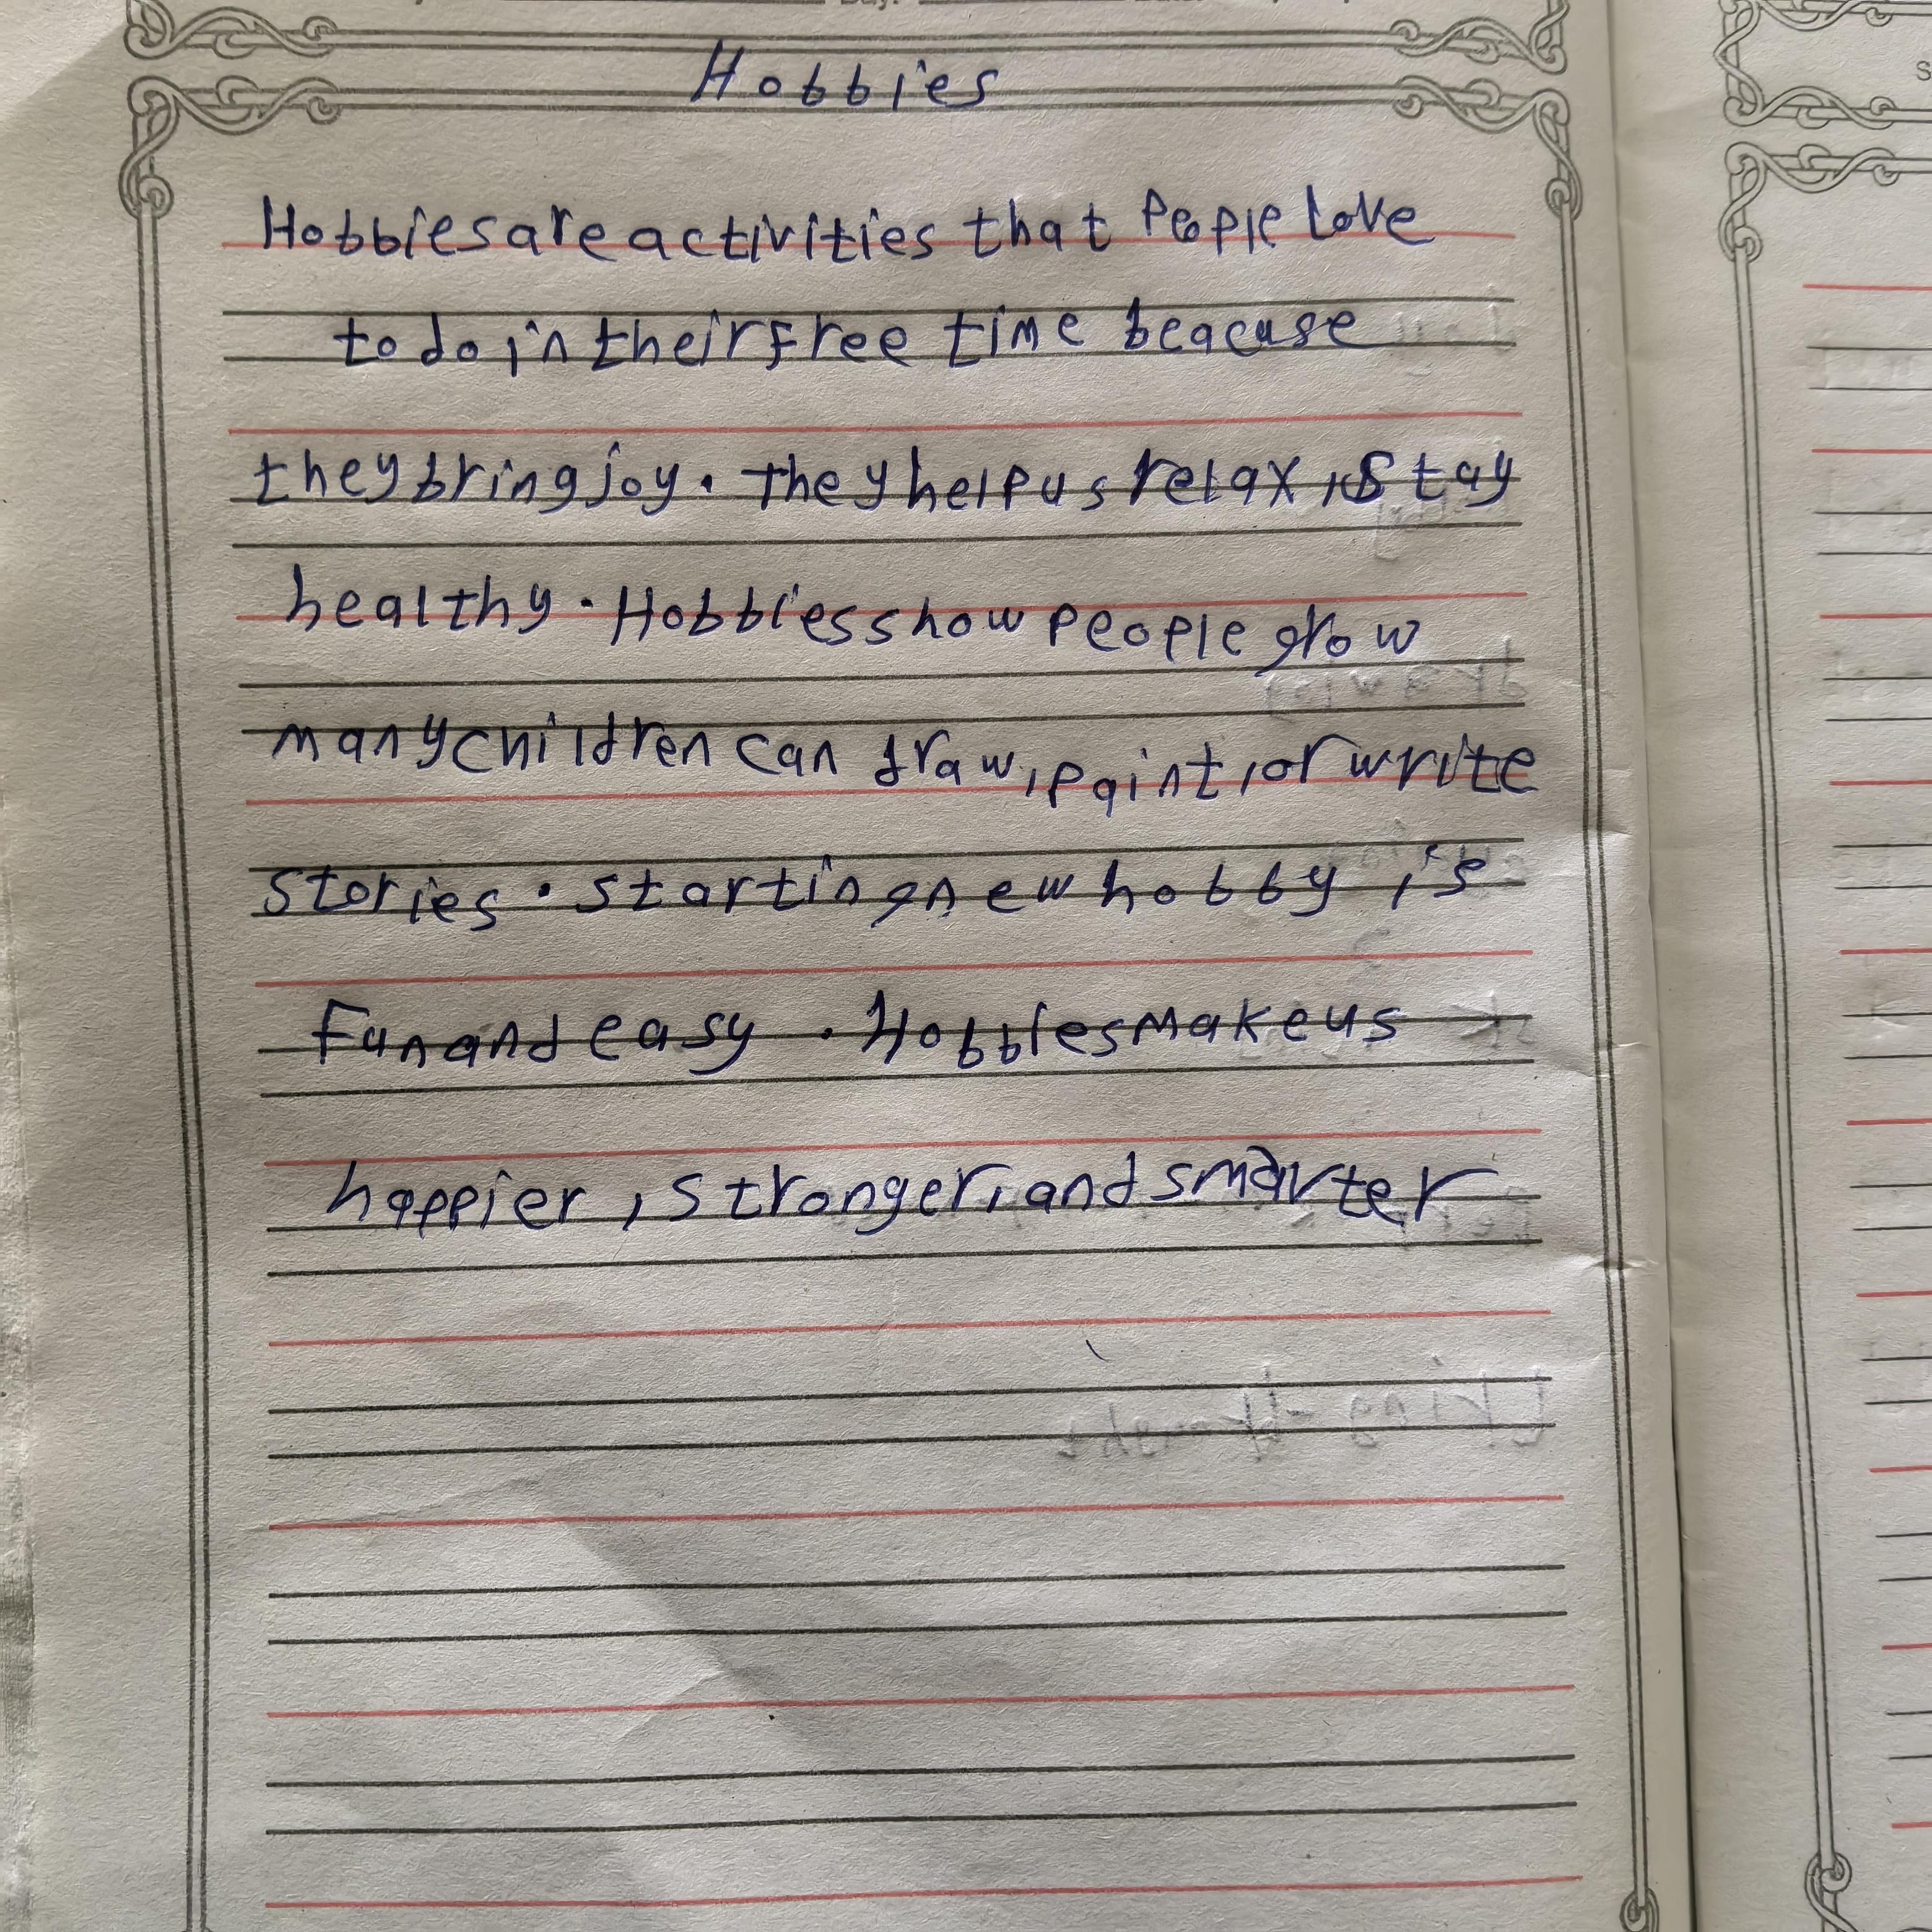 Hobbies
Hobbies are activities that People love
to do in their free time beacuse
they bring joy. They help us relax, stay
healthy. Hobbies show people grow
many children can draw, paint, or write
stories. starting new hobby is
Fun and easy. Hobbies make us
happier, stronger, and smarter